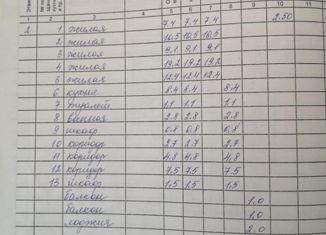 1 2 3 4 5 6 7 8 9 10 11
2 1 жилая 7.4 7.4 7.4 2.50
2 жилая 10.5 10.5 10.5
3 жилая 9.1 9.1 9.1
4 жилая 19.2 19.2 19.2
5 жилая 12.4 12.4 12.4
6 кухня 8.4 8.4 8.4
7 туалет 1.1 1.1 1.1
8 ванная 2.8 2.8 2.8
9 шкаф 0.8 0.8 0.8
10 коридор 2.7 2.7 2.7
11 коридор 4.8 4.8 4.8
12 коридор 7.5 7.5 7.5
13 шкаф 1.5 1.5 1.5
балкон 1.0
балкон 1.0
лоджия 2.0